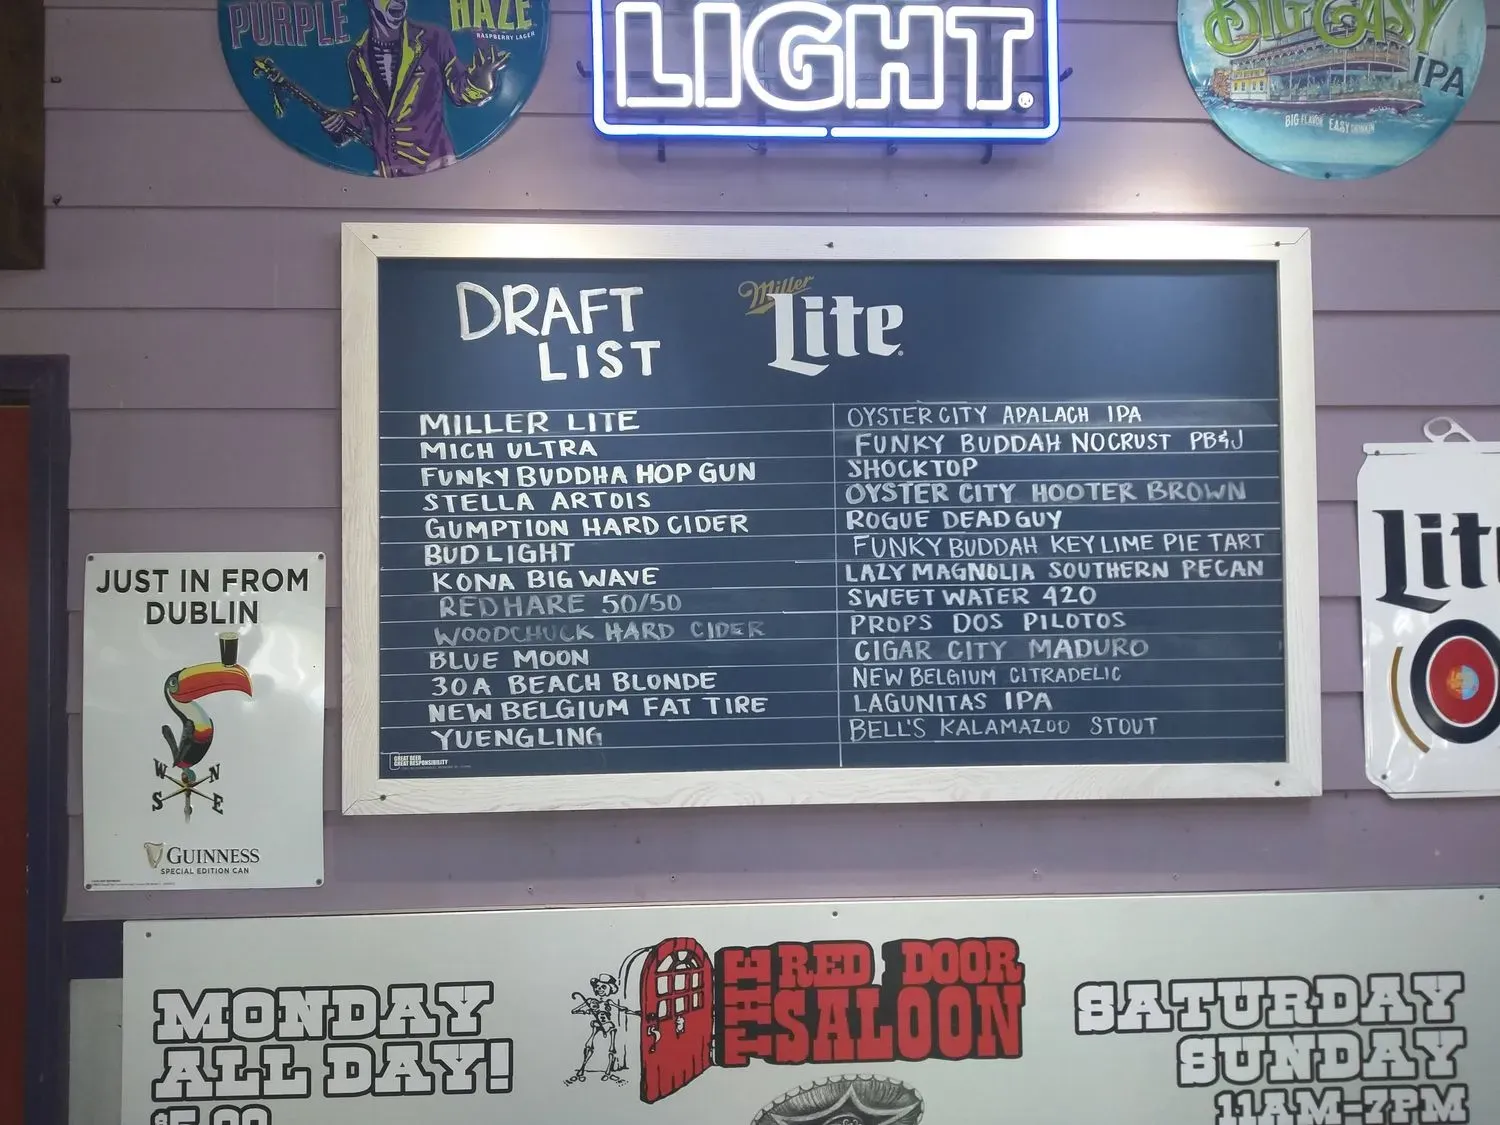 PURPLE
HAZE
RASPBERRY LAGER
LIGHT
BIG EASY
IPA
BIG FLAVOR EASY DRINKIN
DRAFT
LIST
Miller
Lite
MILLER LITE
MICH ULTRA
FUNKY BUDDHA HOP GUN
STELLA ARTOIS
GUMPTION HARD CIDER
BUD LIGHT
KONA BIG WAVE
RED HARE 50/50
WOODCHUCK HARD CIDER
BLUE MOON
30A BEACH BLONDE
NEW BELGIUM FAT TIRE
YUENGLING
OYSTER CITY APALACH IPA
FUNKY BUDDAH NOCRUST PB&J
SHOCKTOP
OYSTER CITY HOOTER BROWN
ROGUE DEAD GUY
FUNKY BUDDAH KEY LIME PIE TART
LAZY MAGNOLIA SOUTHERN PECAN
SWEET WATER 420
PROPS DOS PILOTOS
CIGAR CITY MADURO
NEW BELGIUM CITRADELIC
LAGUNITAS IPA
BELL'S KALAMAZOO STOUT
GREAT BEER
GREAT RESPONSIBILITY
JUST IN FROM
DUBLIN
W N
S E
GUINNESS
SPECIAL EDITION CAN
Lit
MONDAY
ALL DAY!
$5.00
THE RED DOOR
SALOON
SATURDAY
SUNDAY
11AM-7PM